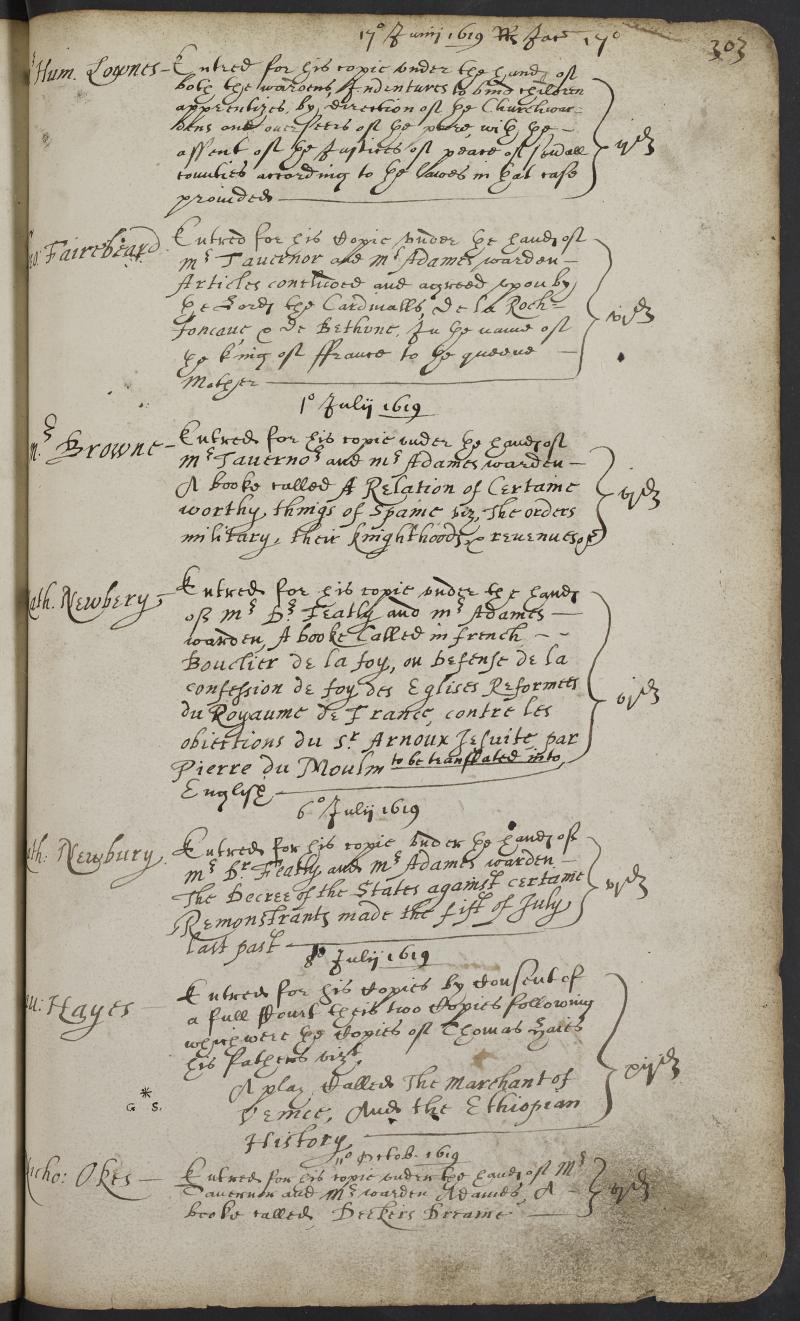 17° Junij 1619 RRs Jac 17°
303
Hum. Lownes Entred for his copie vnder the handes of
both the wardens, Indentures to bind children
apprentizes, by direction of the Churchwar-
dens and ouerseers of the poore, with the
assent of the Justices of peace of seuerall
counties according to the lawes in that case
prouided
vjd
Fairebeard. Entred for his Copie vnder the handes of
mr Tauernor and mr Adames warden
Articles concluded and agreed vpon by
the Lords the Cardinalls, De la Roch-
foucauc & De Bethune, In the name of
the King of ffrance to the queene
Mother
vjd
1° Julij 1619
mr Browne Entred for his copie vnder the handes of
mr Tauernor and mr Adames warden
A booke called A Relation of Certaine
worthy things of Spaine viz, The orders
military, their knighthoods, & reuenues of
vjd
Nath. Newbery, Entred for his copie vnder the handes
of mr Dr Featly and mr Adames
warden, A booke Called in french
Bouclier de la foy, ou Defense de la
confession de foy des Eglises Reformees
du Royaume de France, contre les
obiections du Sr Arnoux Jesuite par
Pierre du Moulin to be translated into
English
vjd
6° Julij 1619
Nath: Newbury. Entred for his Copie vnder the handes of
mr Dr Featly and mr Adames warden
The Decree of the States against certaine
Remonstrants made the fift of July
last past
vjd
8° Julij 1619
Hayes Entred for his Copies by Consent of
a full Court theis two Copies following
which were the Copies of Thomas Haies
his fathers vizt,
A play Called The Marchant of
Venice, And the Ethiopian
History
xijd
*
G. S.
Octob. 1619
Nicho: Okes Entred for his copie vnder the handes of Mr
Tauernor and mr warden Adames, A
booke called Deckers Dreame
vjd